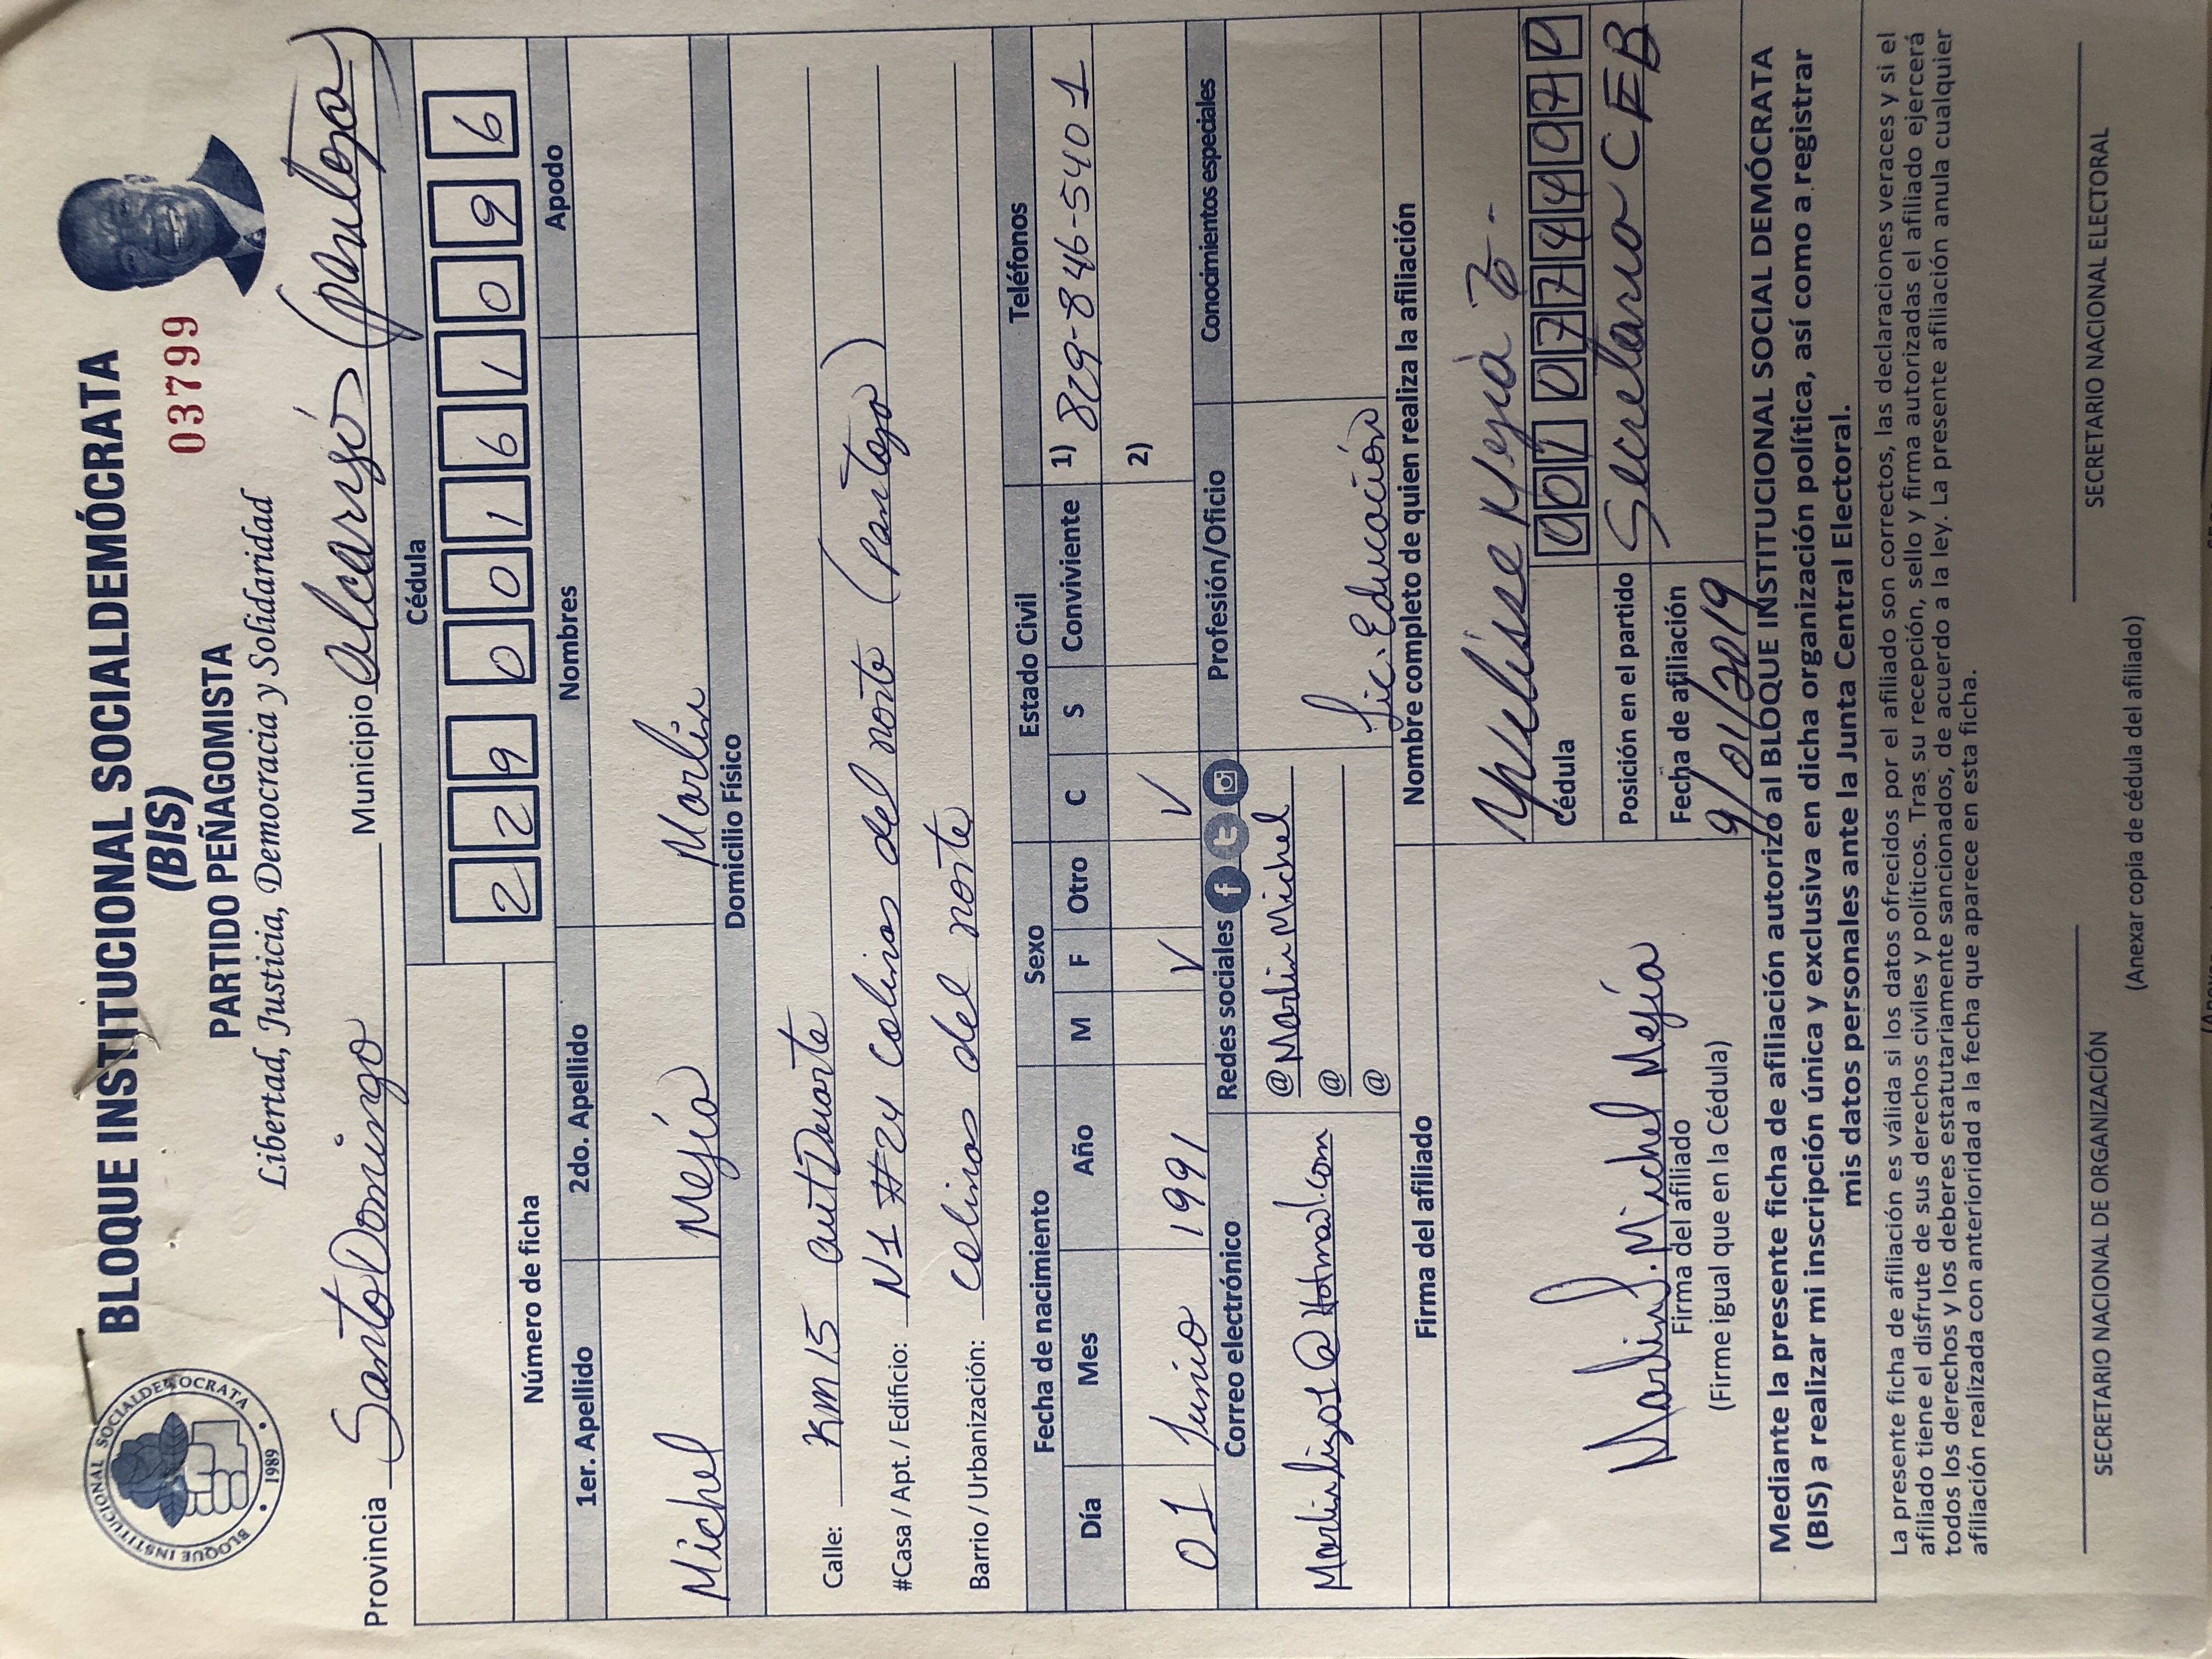 BLOQUE INSTITUCIONAL SOCIALDEMÓCRATA
(BIS)
PARTIDO PEÑAGOMISTA
03799
Libertad, Justicia, Democracia y Solidaridad
BLOQUE INSTITUCIONAL SOCIALDEMOCRATA
1989
Provincia Santo Domingo Municipio Alcarrizo (pantoja)
Cédula
2 2 9 0 0 1 6 1 0 9 6
Número de ficha
1er. Apellido 2do. Apellido Nombres Apodo
Michel Mejía Marlin
Domicilio Físico
Calle: Km 15 aut Duarte
#Casa / Apt. / Edificio: N1 #24 Colinas del norte (Pantoja)
Barrio / Urbanización: Colinas del norte
Fecha de nacimiento Sexo Estado Civil Teléfonos
Día Mes Año M F Otro C S Conviviente 1) 829-846-5401
01 Junio 1991 V V 2)
Correo electrónico Redes sociales Profesión/Oficio Conocimientos especiales
@MarlinMichel
@
@
Lic. Educación
Firma del afiliado Nombre completo de quien realiza la afiliación
Mejía
Cédula 0 0 1 0 7 7 4 4 9 7 4
Posición en el partido Secretario CEB
Fecha de afiliación
9/01/2019
Marlin J. Michel Mejía
Firma del afiliado
(Firme igual que en la Cédula)
Mediante la presente ficha de afiliación autorizo al BLOQUE INSTITUCIONAL SOCIAL DEMÓCRATA
(BIS) a realizar mi inscripción única y exclusiva en dicha organización política, así como a registrar
mis datos personales ante la Junta Central Electoral.
La presente ficha de afiliación es válida si los datos ofrecidos por el afiliado son correctos, las declaraciones veraces y si el
afiliado tiene el disfrute de sus derechos civiles y políticos. Tras su recepción, sello y firma autorizadas el afiliado ejercerá
todos los derechos y los deberes estatutariamente sancionados, de acuerdo a la ley. La presente afiliación anula cualquier
afiliación realizada con anterioridad a la fecha que aparece en esta ficha.
SECRETARIO NACIONAL DE ORGANIZACIÓN SECRETARIO NACIONAL ELECTORAL
(Anexar copia de cédula del afiliado)